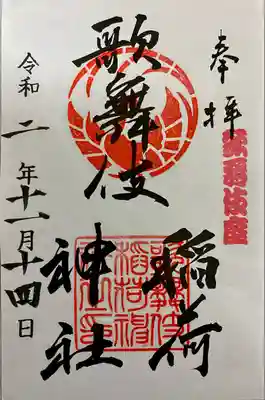 奉拝
歌舞伎座
歌舞伎
稲荷
神社
令和二年十一月十四日